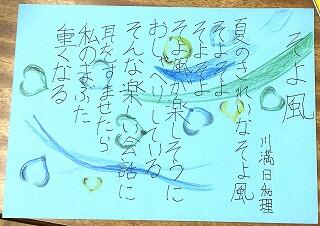 そよ風
川満日和理
夏のきれいなそよ風
そよそよ
そよそよ
そよ風が楽しそうに
おしゃべりしている
そんな楽しい会話に
耳をすませたら
私のまぶた
重くなる